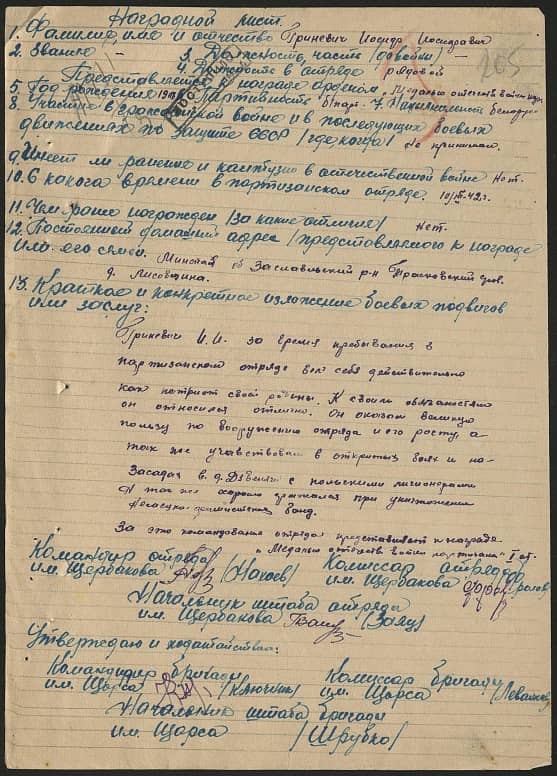 Наградной лист.
1. Фамилия, имя и отчество Гриневич Иосиф Иосифович
2. Звание – 3. Должность, часть (довойны) –
4. Должность в отряде рядовой
Представляется к награде орденом "Медалью отечеств войны
5. Год рождения 6. Партийность б/парт. 7. Национальность белорус
8. Участие в гражданской войне и в последующих боевых
движениях по защите СССР (где, когда) Не принимал.
9. Имеет ли ранения и контузии в отечественной войне Нет.
10. С какого времени в партизанском отряде. 42 г.
11. Чем ранее награжден (за какие отличия) нет.
12. Постоянный домашний адрес (представляемого к награде
или его семьи. Минской Заславльский р-н
д. Лисовщина.
13. Краткое и конкретное изложение боевых подвигов
или заслуг:
Гриневич И.И. за время пребывания в
партизанском отряде вел себя действительно
как патриот своей родины. К своим обязаностям
он относился отлично. Он оказал великую
пользу по вооружению отряда и его росту, а
так же учавствовал в открытых боях и на
засадах в д. с польскими легионерами
А так же хорошо держался при уничтожении
банд.
За это командование отряда представляет к награде
"Медалью отечеств войны партизана" I ст.
Командир отряда Комиссар отряда
им. Щербакова им. Щербакова
Начальник штаба отряда
им. Щербакова (Заяц)
Утверждаю и ходатайствую:
Командир бригады Комиссар бригады
им. Щорса (Ключник) им. Щорса
Начальник штаба бригады
им. Щорса (Шрубко)
205